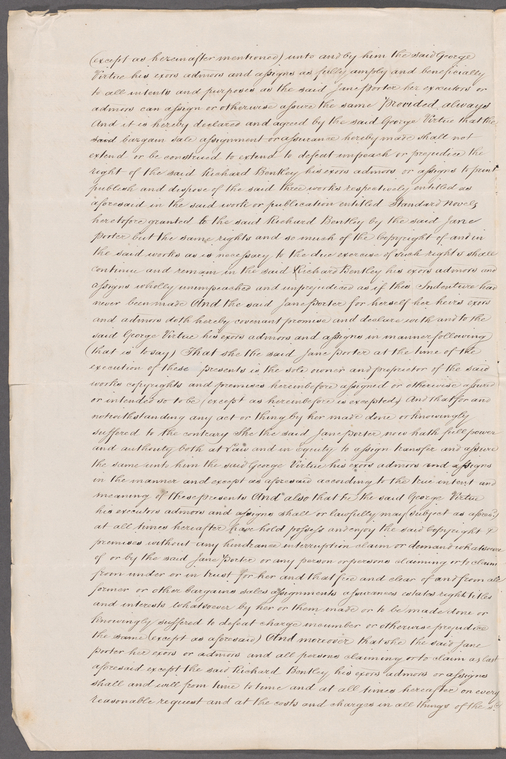 (except as hereinafter mentioned) unto and by him the said George
Virtue his exors admors and assigns as fully amply and beneficially
to all intents and purposes as the said Jane Porter her executors or
admors can assign or otherwise assure the same Provided always
And it is hereby declared and agreed by the said George Virtue that the
said bargain sale assignment or assurance hereby made shall not
extend or be construed to extend to defeat impeach or prejudice the
right of the said Richard Bentley his exors admors or assigns to print
publish and dispose of the said three works respectively entitled as
aforesaid in the said work or publication entitled Standard Novels
heretofore granted to the said Richard Bentley by the said Jane
Porter but the same rights and so much of the Copyright of and in
the said works as is necessary to the due exercise of such rights shall
continue and remain in the said Richard Bentley his exors admors and
assigns wholly unimpeached and unprejudiced as if this Indenture had
never been made And the said Jane Porter for herself her heirs exors
and admors doth hereby covenant promise and declare with and to the
said George Virtue his exors admors and assigns in manner following
(that is to say) That she the said Jane Porter at the time of the
execution of these presents is the sole owner and proprietor of the said
works copyrights and premises hereinbefore assigned or otherwise assured
or intended so to be (except as hereinbefore is excepted) And that for and
notwithstanding any act or thing by her made done or knowingly
suffered to the contrary She the said Jane Porter now hath full power
and authority both at Law and in equity to assign transfer and assure
the same unto him the said George Virtue his exors admors and assigns
in the manner and except as aforesaid according to the true intent and
meaning of these presents And also that he the said George Virtue
his executors admors and assigns shall or lawfully may subject as aforesd
at all times hereafter have hold possess and enjoy the said copyright &
premises without any hindrance interruption claim or demand whatsoever
of or by the said Jane Porter or any person or persons claiming or to claim
from under or in trust for her and that free and clear of and from all
former or other bargains sales assignments assurances estates rights titles
and interests whatsoever by her or them made or to be made done or
knowingly suffered to defeat charge incumber or otherwise prejudice
the same (except as aforesaid) And moreover that she the said Jane
Porter her exors or admors and all persons claiming or to claim as last
aforesaid except the said Richard Bentley his exors admors or assigns
shall and will from time to time and at all times hereafter on every
reasonable request and at the costs and charges in all things of the sd